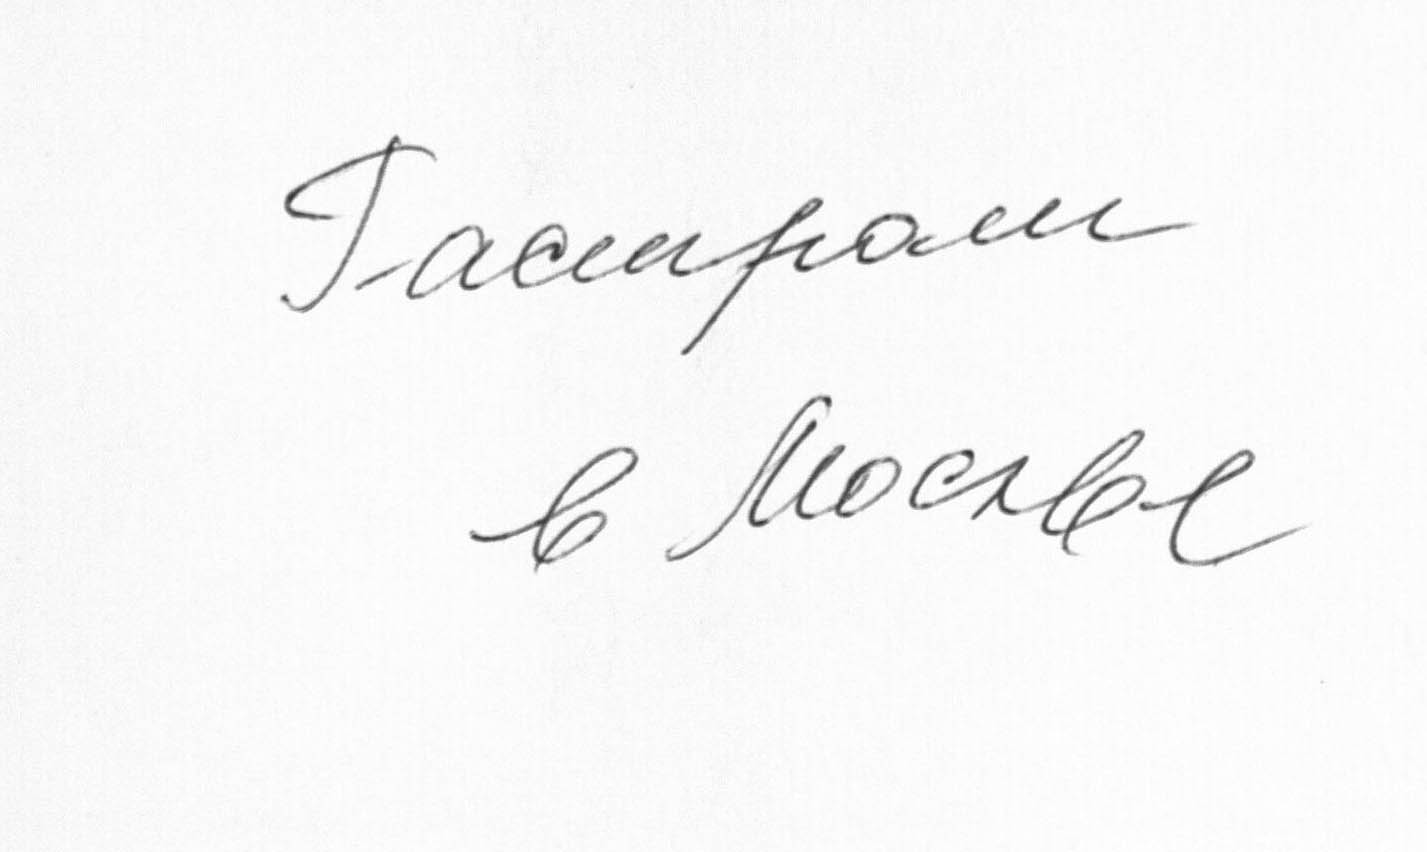 Гастроли
в Москве